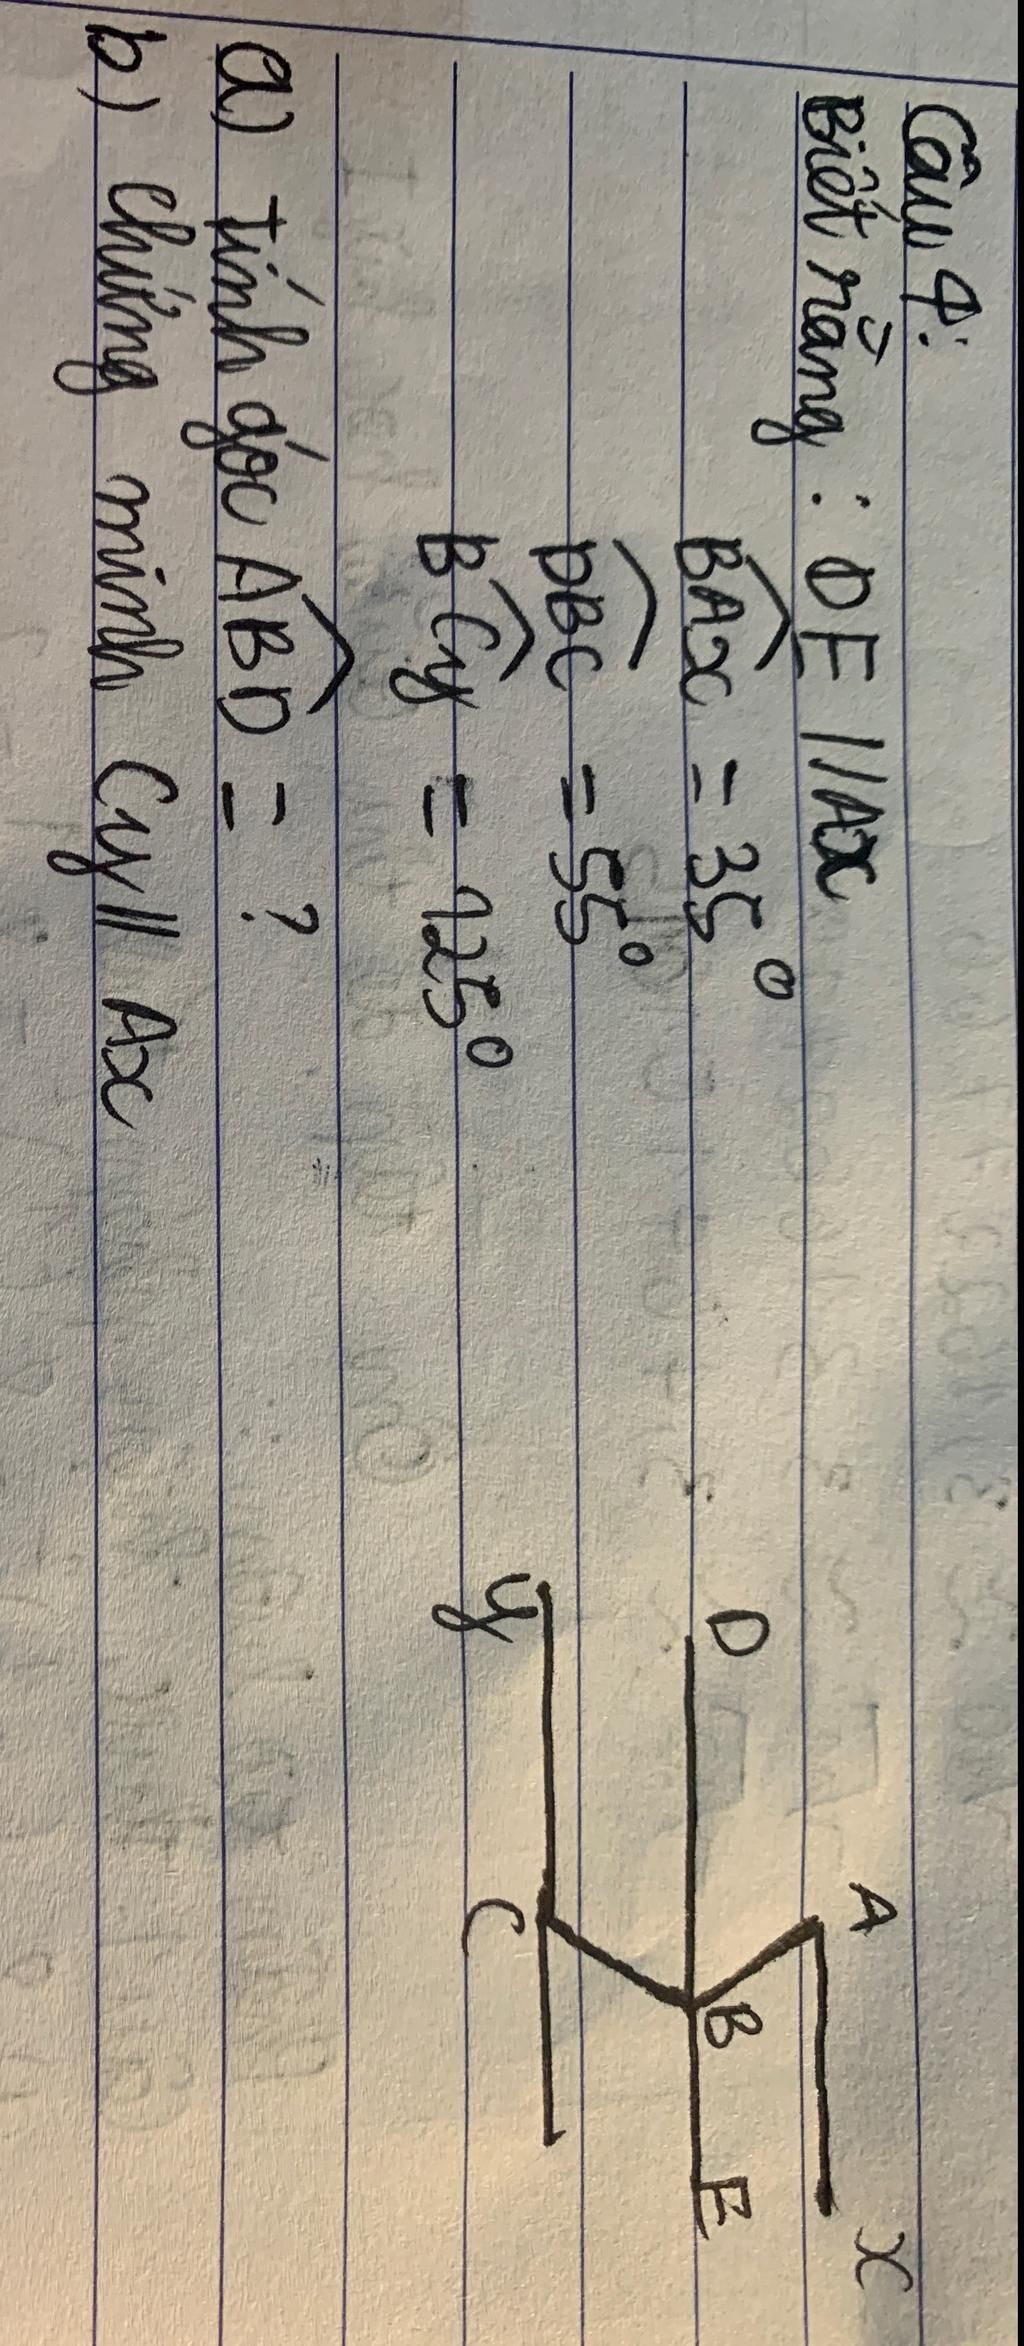 Câu 4:
Biết rằng : DE // Ax
BAx = 35°
DBC = 55°
BCy = 125°
a) Tính góc ABD = ?
b) Chứng minh Cy // Ax
A
x
D
B
E
y
C